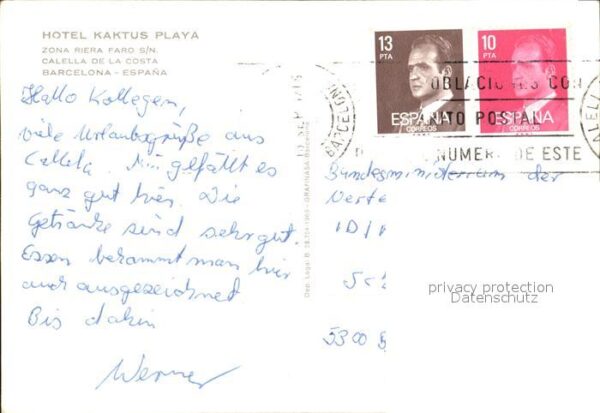 HOTEL KAKTUS PLAYA
ZONA RIERA FARO S/N.
CALELLA DE LA COSTA
BARCELONA - ESPAÑA
Hallo Kollegen,
viele Urlaubsgrüße aus
Calella. Mir gefällt es
ganz gut hier. Die
Getränke sind sehr gut
Essen bekommt man hier
auch ausgezeichnet
Bis dahin
Werner
13
PTA
ESPAÑA
CORREOS
10
PTA
ESPAÑA
CORREOS
OBLACIONES CON
TO POSTAL
NUMERO DE ESTE
BARCELON
ALELL
Dep. Legal: B.
Bundesministerium der
Verte
ID/
5300
privacy protection
Datenschutz